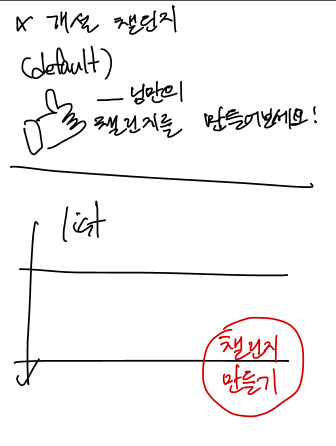 개설 챌린지
(default)
__ 님만의
챌린지를 만들어보세요!
list
챌린지
만들기